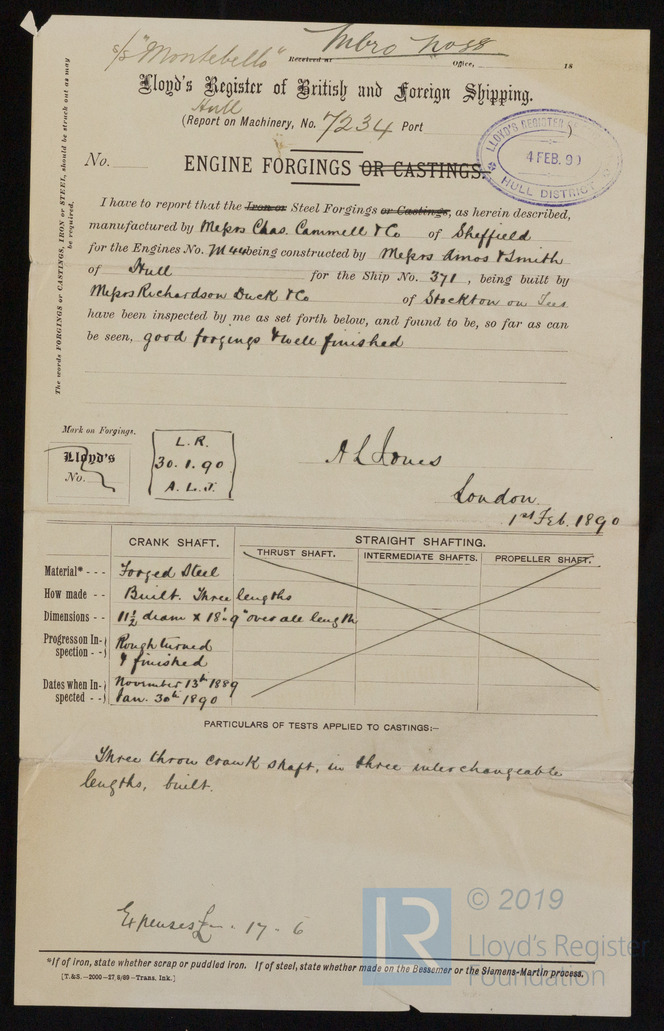 s/s "Montebello"
Mbro No 98
Received at Office, 18
Lloyd's Register of British and Foreign Shipping.
Hull
(Report on Machinery, No. 7234 Port
LLOYD'S REGISTER
4 FEB. 90
HULL DISTRICT
No.
ENGINE FORGINGS OR CASTINGS.
The words FORGINGS or CASTINGS, IRON or STEEL, should be struck out as may
be required.
I have to report that the Iron or Steel Forgings or Castings, as herein described,
manufactured by Messrs Chas. Cammell & Co of Sheffield
for the Engines No. M44 being constructed by Messrs Amos & Smith
of Hull for the Ship No. 371, being built by
Messrs Richardson Duck & Co of Stockton on Tees
have been inspected by me as set forth below, and found to be, so far as can
be seen, good forgings & well finished
Mark on Forgings.
Lloyd's
No.
L.R.
30.1.90
A.L.J.
A L Jones
London
1st Feb. 1890
CRANK SHAFT.
STRAIGHT SHAFTING.
THRUST SHAFT. INTERMEDIATE SHAFTS. PROPELLER SHAFT.
Material* - - - Forged Steel
How made - - Built. Three lengths
Dimensions - - 11½ diam x 18'-9" over all length
Progress on In- Rough turned
spection - - & finished
Dates when In- November 13th 1889
spected - - Jan. 30th 1890
PARTICULARS OF TESTS APPLIED TO CASTINGS:–
Three throw crank shaft, in three interchangeable
lengths, built.
Expenses £ - . 17 . 6
© 2019
LR
Lloyd's Register
Foundation
*If of iron, state whether scrap or puddled iron. If of steel, state whether made on the Bessemer or the Siemens-Martin process.
[T.&S.—2000—27,8/89—Trans. Ink.]